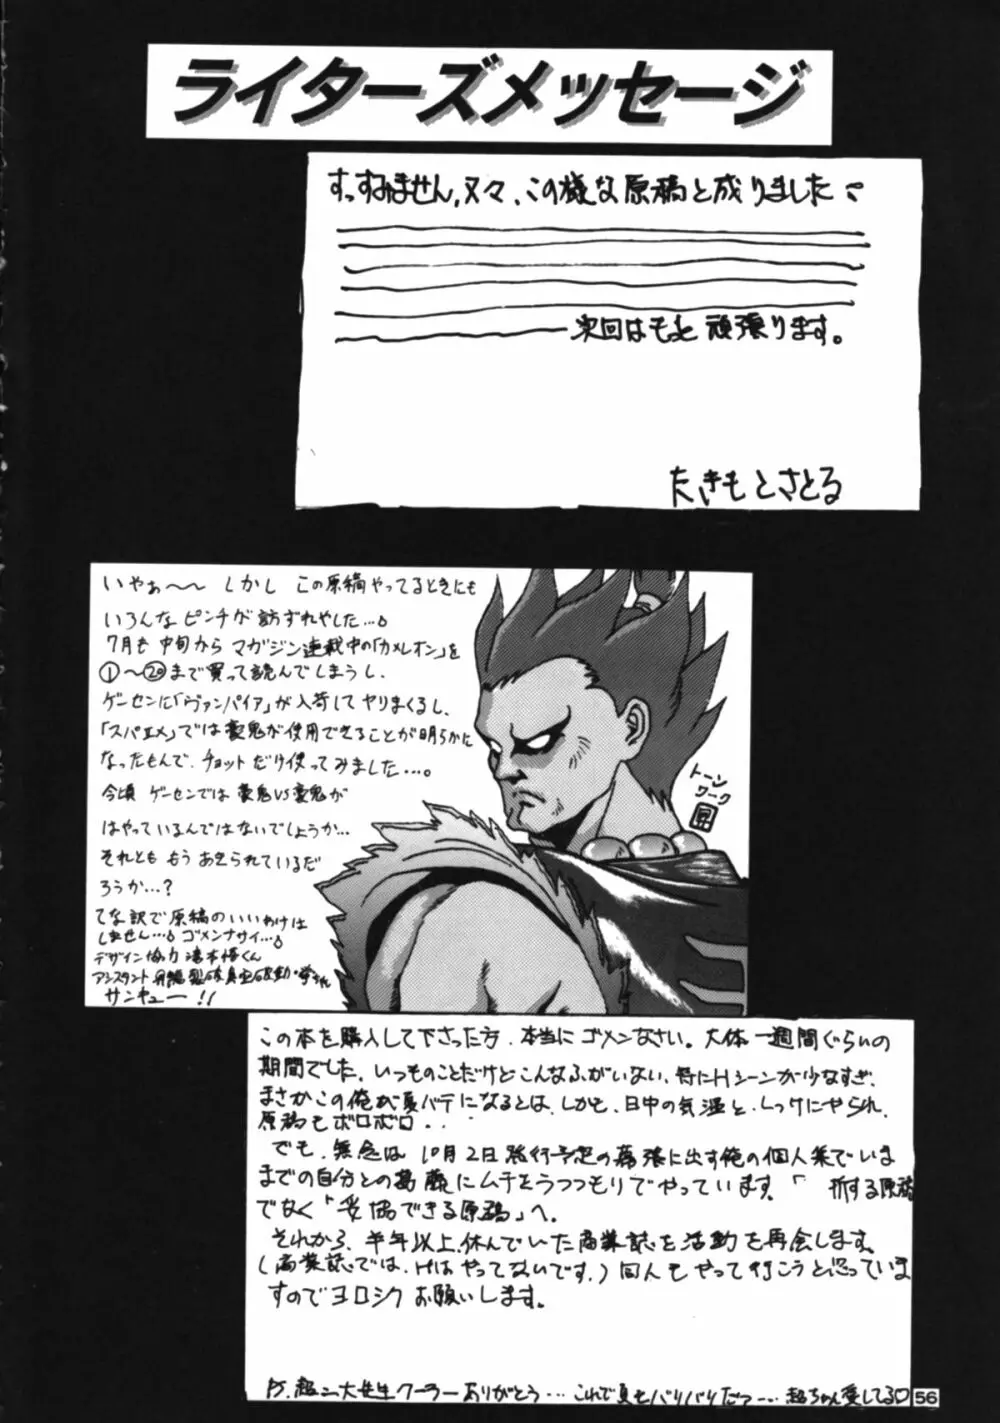 ライターズメッセージ
すっすみません,又々、この様な原稿と成りました
次回はもっと頑張ります。
たきもとさとる
いやぁ〜〜 しかし この原稿やってるときにも
いろんなピンチが訪ずれやした…。
7月も中旬から マガジン連載中の「カメレオン」を
①〜⑳まで買って読んでしまうし、
ゲーセンに「ヴァンパイア」が入荷してヤリまくるし、
「スパエメ」では豪鬼が使用できることが明らかに
なったもんで、チョットだけ使ってみました…。
今頃 ゲーセンでは 豪鬼VS豪鬼が
はやっているんではないでしょうか…
それとも もう あきられているだ
ろうか…?
てな訳で原稿のいいわけは
しません… ゴメンナサイ…
デザイン協力 滝本悟くん
アシスタント
サンキュー!!
トーン
ワーク
昇
この本を購入して下さった方、本当にゴメンなさい。大体一週間ぐらいの
期間でした、いつものことだけどこんなふがいない、特にHシーンが少なすぎ、
まさかこの俺が夏バテになるとは、しかも、日中の気温と、しっけにやられ、
原稿もボロボロ・・
でも、無念は10月2日発行予定の幕張に出す俺の個人集でいま
までの自分との葛藤にムチをうつつもりでやっています。「 折する原稿
でなく「妥協できる原稿」へ。
それから、半年以上、休んでいた商業誌を活動を再会します。
(商業誌では、Hはやってないです。)同人もやって行こうと思っていま
すのでヨロシクお願いします。
PS.超二大先生クーラーありがとう…これで夏もバリバリだっ…超ちゃん愛してる♡
56